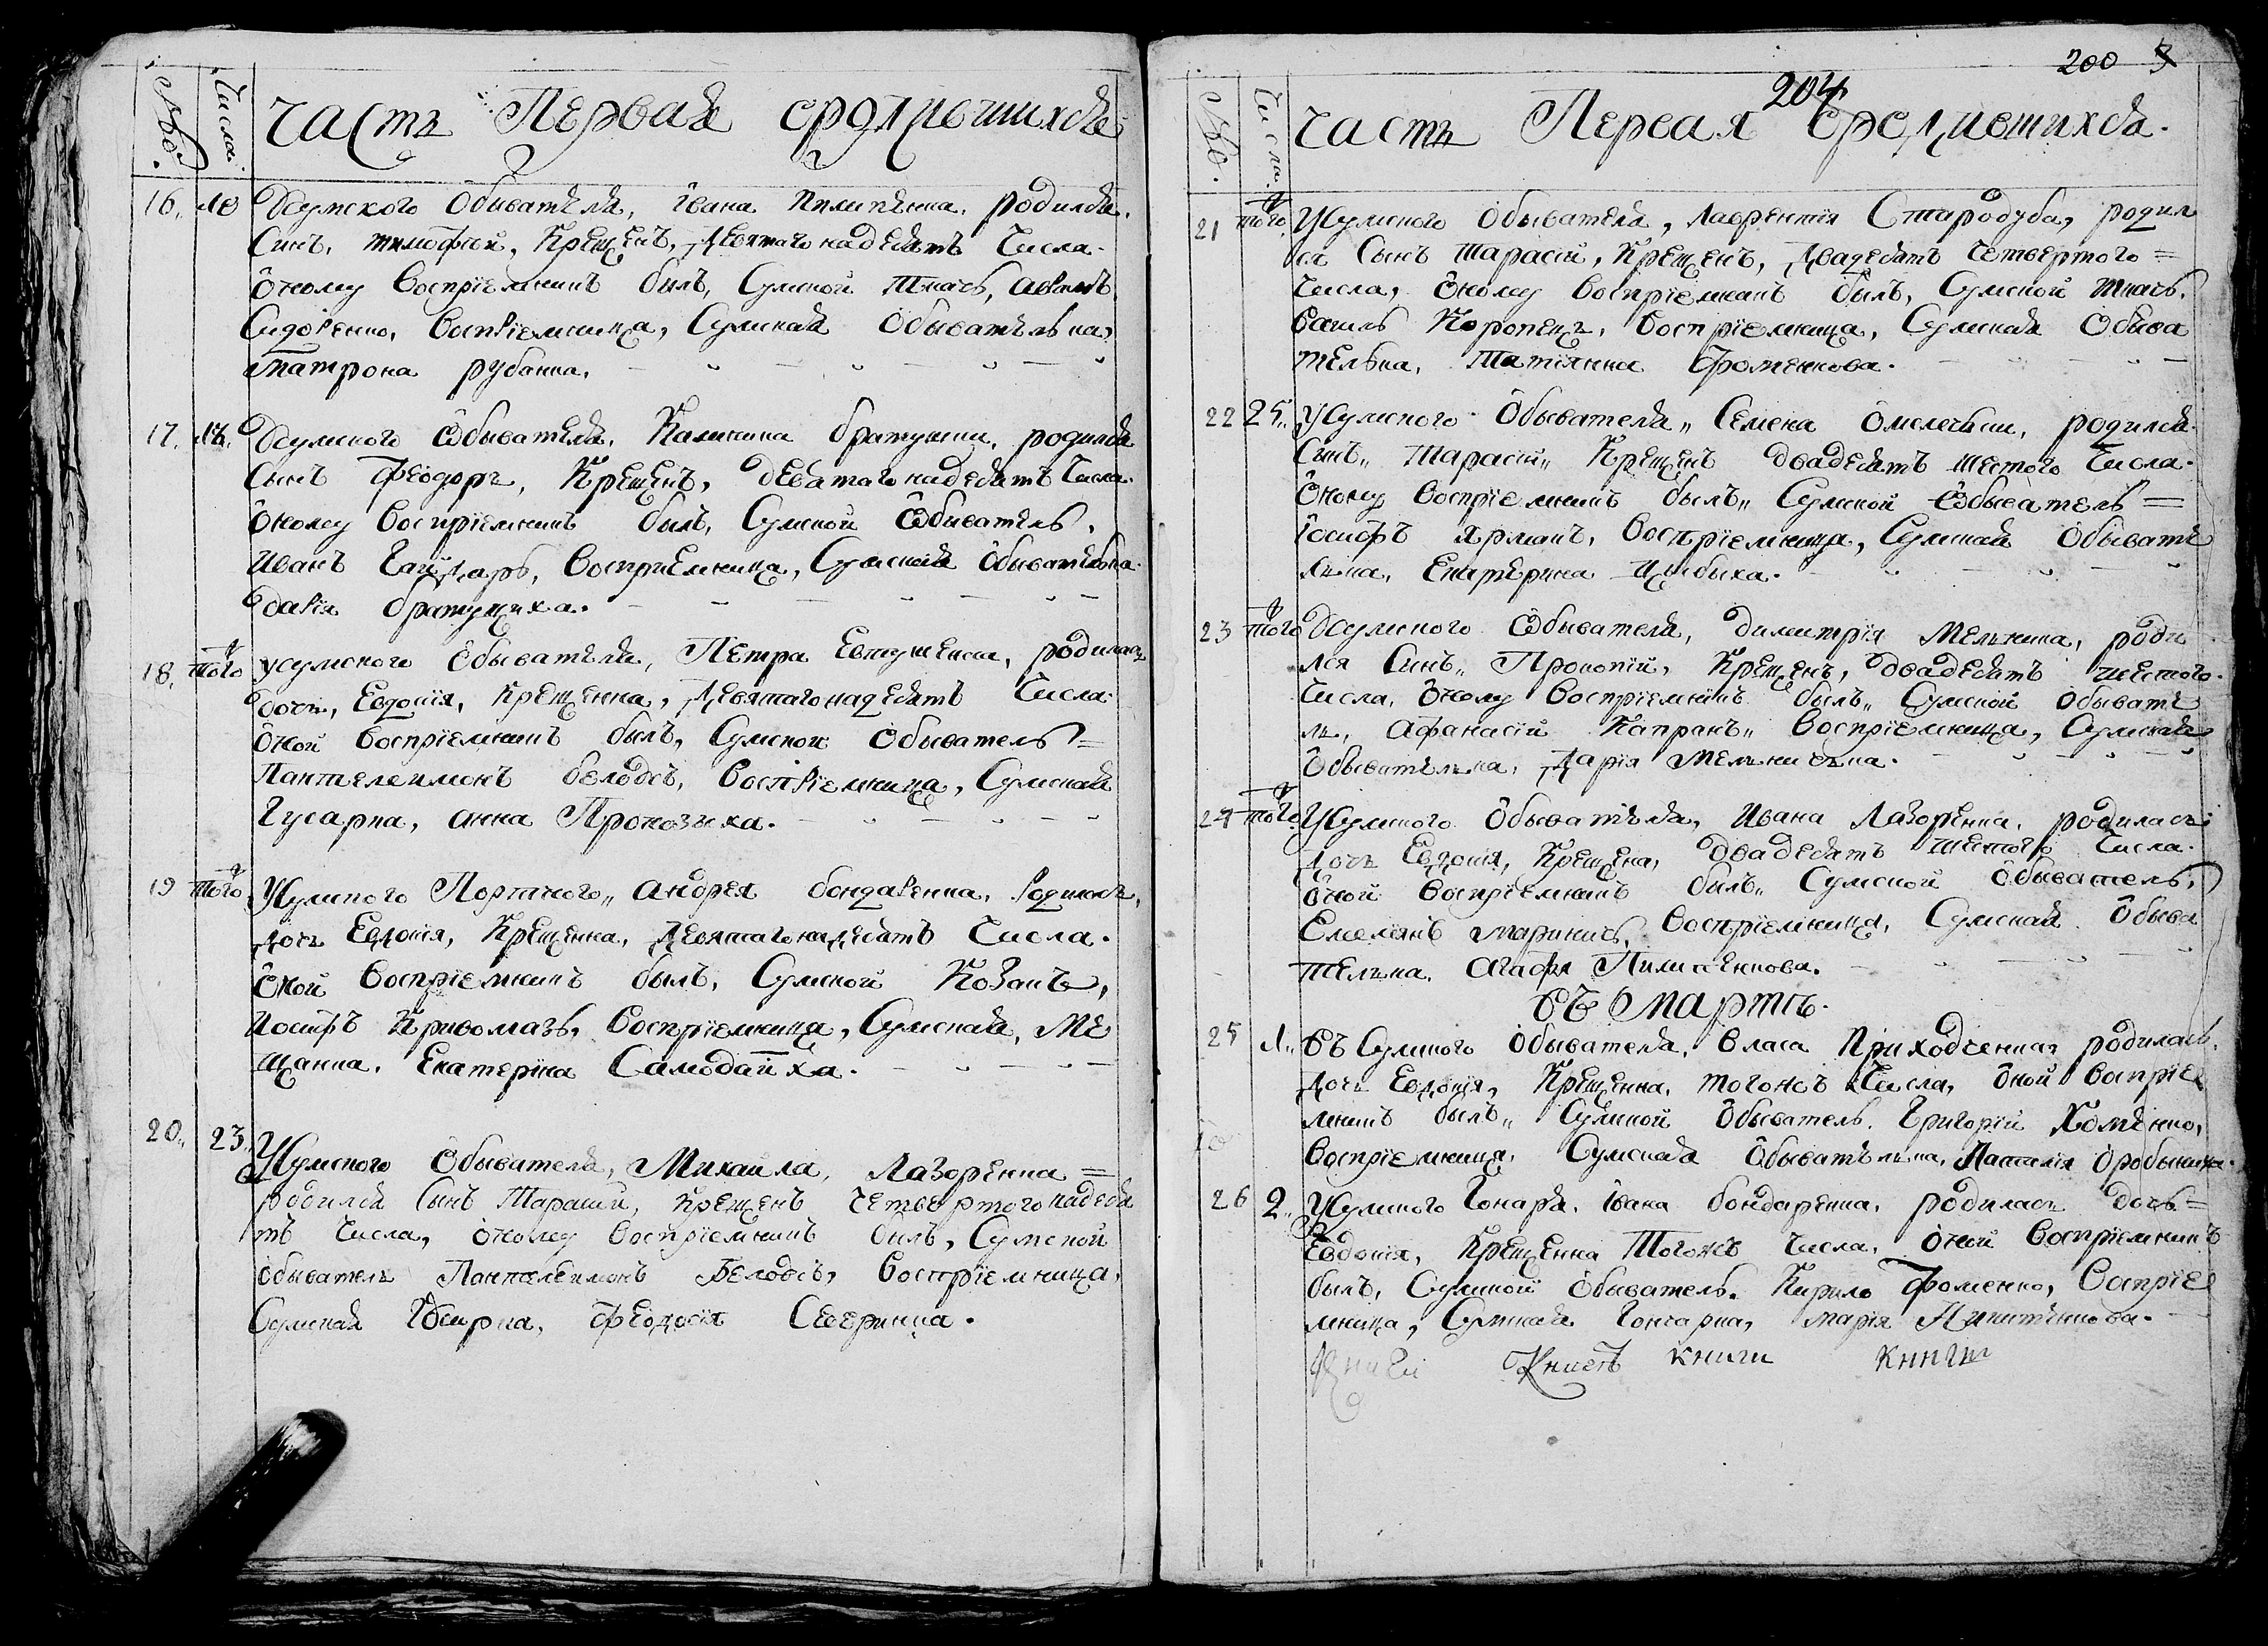 №. Числа. часть Первая ордлившихся
16. 18 Усумского Обивателя, Івана Пилипенка, родился,
Синъ, тимофей, Крещенъ, Девятагонадесять Числа.
Оному Воспріемникъ былъ, Сумской Ткачь, аврамъ,
Сидоренко, Воспріемница, Сумская Обывателька,
матрона рубанка,
17. 18. Усумского Обывателя, Калинника братушки, родился
Сынъ Феодоръ, Крещенъ, девятагонадесять Числа.
Оному Воспріемникъ былъ, Сумской Обиватель,
Иванъ Гайдарь, Воспріемница, Сумская Обывателька
дарія братущиха.
18. того усумского Обывателя, Петра Евтушенка, родилась
дочь, Евдокія, Крещенна, Девятагонадесять Числа
Оной Воспріемникъ былъ, Сумской Обыватель=
Пантелеимонъ белодѣ́дъ, Воспріемница, Сумская
Гусарка, анна Прокозыха.
19 того Усумского Портного, андрея бондаренка, родилась,
дочь Евдокія, Крещенна, Девятагонадесять Числа.
Оной Воспріемникъ былъ, Сумской Козакъ,
Иосифъ Кривомазъ, Воспріемница, Сумская, Ме
щанка, Екатеріна Самодайха.
20. 23. Усумского Обывателя, Михаила, Лазоренка=
родился Сынъ Тарасий, Крещенъ Четвертогонадеся
ть Числа, Оному Воспріемникъ былъ, Сумской
Обыватель Пантелеимонъ Белодѣдъ, Воспріемница,
Сумская Гусарка, Феодосія Северинка.
200 3
204
№. Числа. часть Первая Ородившихся.
21 того. Усумского Обывателя, Лаврентія Стародуба, родил
ся Сынъ Тарасій, Крещенъ, Двадесять Четвертого=
Числа, Оному Воспріемникъ былъ, Сумской Ткачь.
Василь Коропецъ, Воспріемница, Сумская Обыва
телька, Татіянна Фроменкова.
22 25. Усумского Обывателя, Семена Омелечьки, родился
Сынъ, Тарасій, Крещенъ двадесять шестого Числа.
Оному Воспріемникъ былъ, Сумской Обыватель=
Іосифъ Ярмакъ, Воспріемница, Сумская Обывате
лька, Екатерина Цыбыха.
23 того Усумского Обывателя, димитрія Мелника, роди
лся Синъ, Прокопій, Крещенъ, двадесять шестого.
Числа, Оному Воспріемникъ былъ, Сумской Обывате
ль, Афанасій Капранъ, Воспріемница, Сумская
Обывателька, Дарія Мелничька.
24 того. Усумского Обывателя, Ивана Лазоренка, родилась
дочь Евдокія, Крещена, двадесять шестого Числа.
Оной Воспріемникъ былъ, Сумской Обыватель,
Емелянъ Мариничь, Воспріемница, Сумская Обыва
телька, Агафія Пилипенкова.
Въ Мартѣ.
25 1. Въ Сумского Обывателя, Власа Приходченка, родилась,
дочь Евдокія, Крещенна, тогожъ Числа, Оной Воспріе
мникъ былъ, Сумской Обыватель, Григорій Хоменко,
Воспріемница, Сумская Обывателька, Наталія дробыниха.
26 2. Усумского Гонаря, Івана бондаренка, родилась дочь=
Евдокія, Крещенна Тогожъ Числа, Оной Воспріемникъ
былъ, Сумской Обыватель, Кирило Фоменко, Воспріе
мница, Сумская Гончарка, марія Микитенкова.
Книги Книгъ книги книги